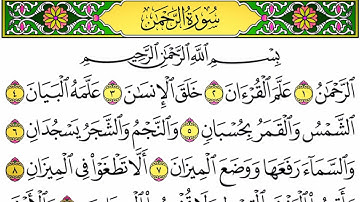 سُورَةُ الرَّحْمَٰن
بِسْمِ اللَّهِ الرَّحْمَٰنِ الرَّحِيمِ
الرَّحْمَٰنُ ١ عَلَّمَ الْقُرْءَانَ ٢ خَلَقَ الْإِنسَٰنَ ٣ عَلَّمَهُ الْبَيَانَ ٤
الشَّمْسُ وَالْقَمَرُ بِحُسْبَانٍ ٥ وَالنَّجْمُ وَالشَّجَرُ يَسْجُدَانِ ٦
وَالسَّمَاءَ رَفَعَهَا وَوَضَعَ الْمِيزَانَ ٧ أَلَّا تَطْغَوْا فِي الْمِيزَانِ ٨